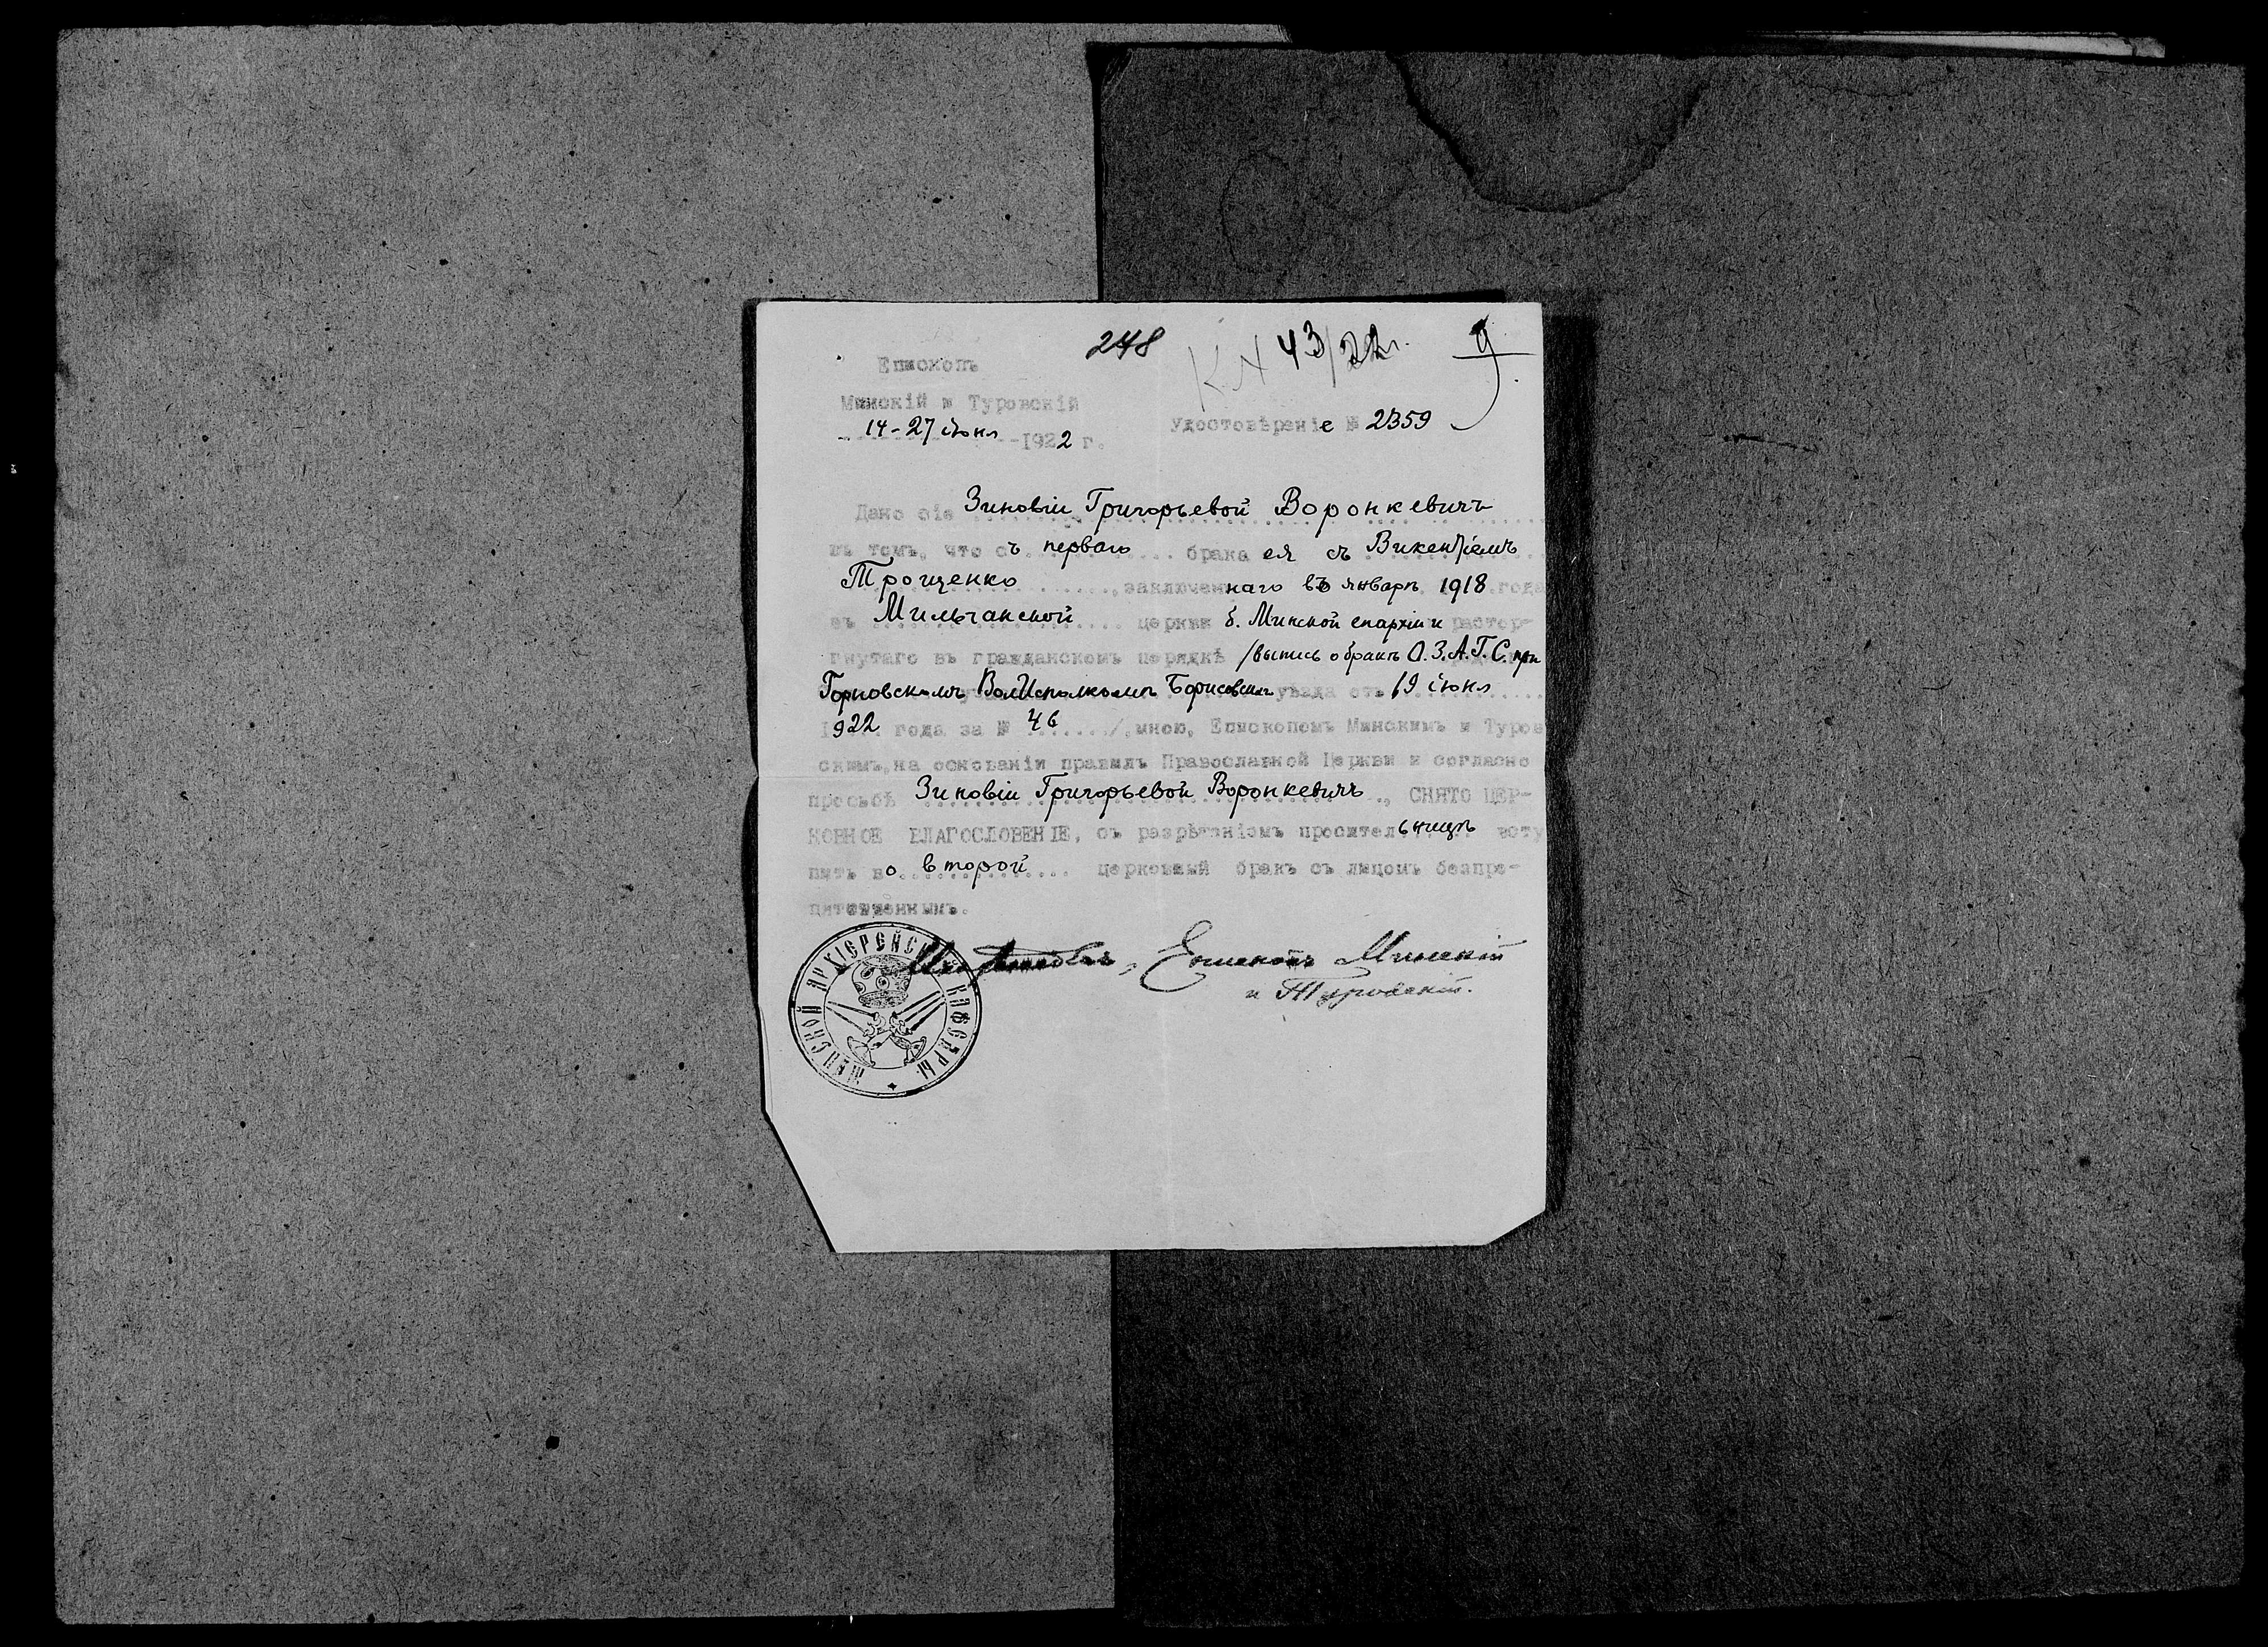 248 К № 43/22 г. 9
Епископъ
Минскій и Туровскій
14-27 іюня 1922 г.
Удостовѣреніе № 2359
Дано сіе Зиновіи Григорьевой Воронкевичъ
въ томъ, что съ перваго брака ея съ Викентіемъ
Трощенко, заключеннаго въ январѣ 1918 года
въ Мильчанской церкви б. Минской епархіи и растор-
гнутаго въ гражданскомъ порядкѣ /выпись о бракѣ О.З.А.Г.С. при
Горковскомъ ВолИсполкомѣ Борисовскаго уѣзда отъ 19 іюня
1922 года за № 46 /, мною, Епископомъ Минскимъ и Туров
скимъ, на основаніи правилъ Православной Церкви и согласно
просьбѣ Зиновіи Григорьевой Воронкевичъ, СНЯТО ЦЕР-
КОВНОЕ БЛАГОСЛОВЕНІЕ, съ разрѣшеніемъ просительницѣ всту
пить во второй церковный бракъ съ лицомъ безпре-
пятственнымъ.
Епископъ Минскій
и Туровскій.
МИНСКОЙ АРХІЕРЕЙСКОЙ КАФЕДРЫ